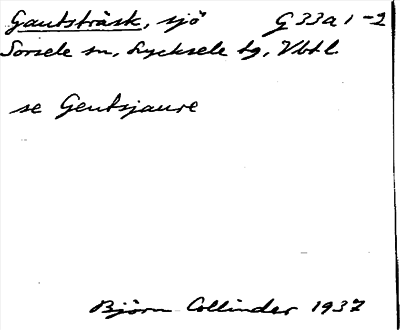 Gautsträsk, sjö G 33a 1-2
Sorsele sn, Lycksele tg, Vbtl.
se Gentsjaure
Björn Collinder 1937